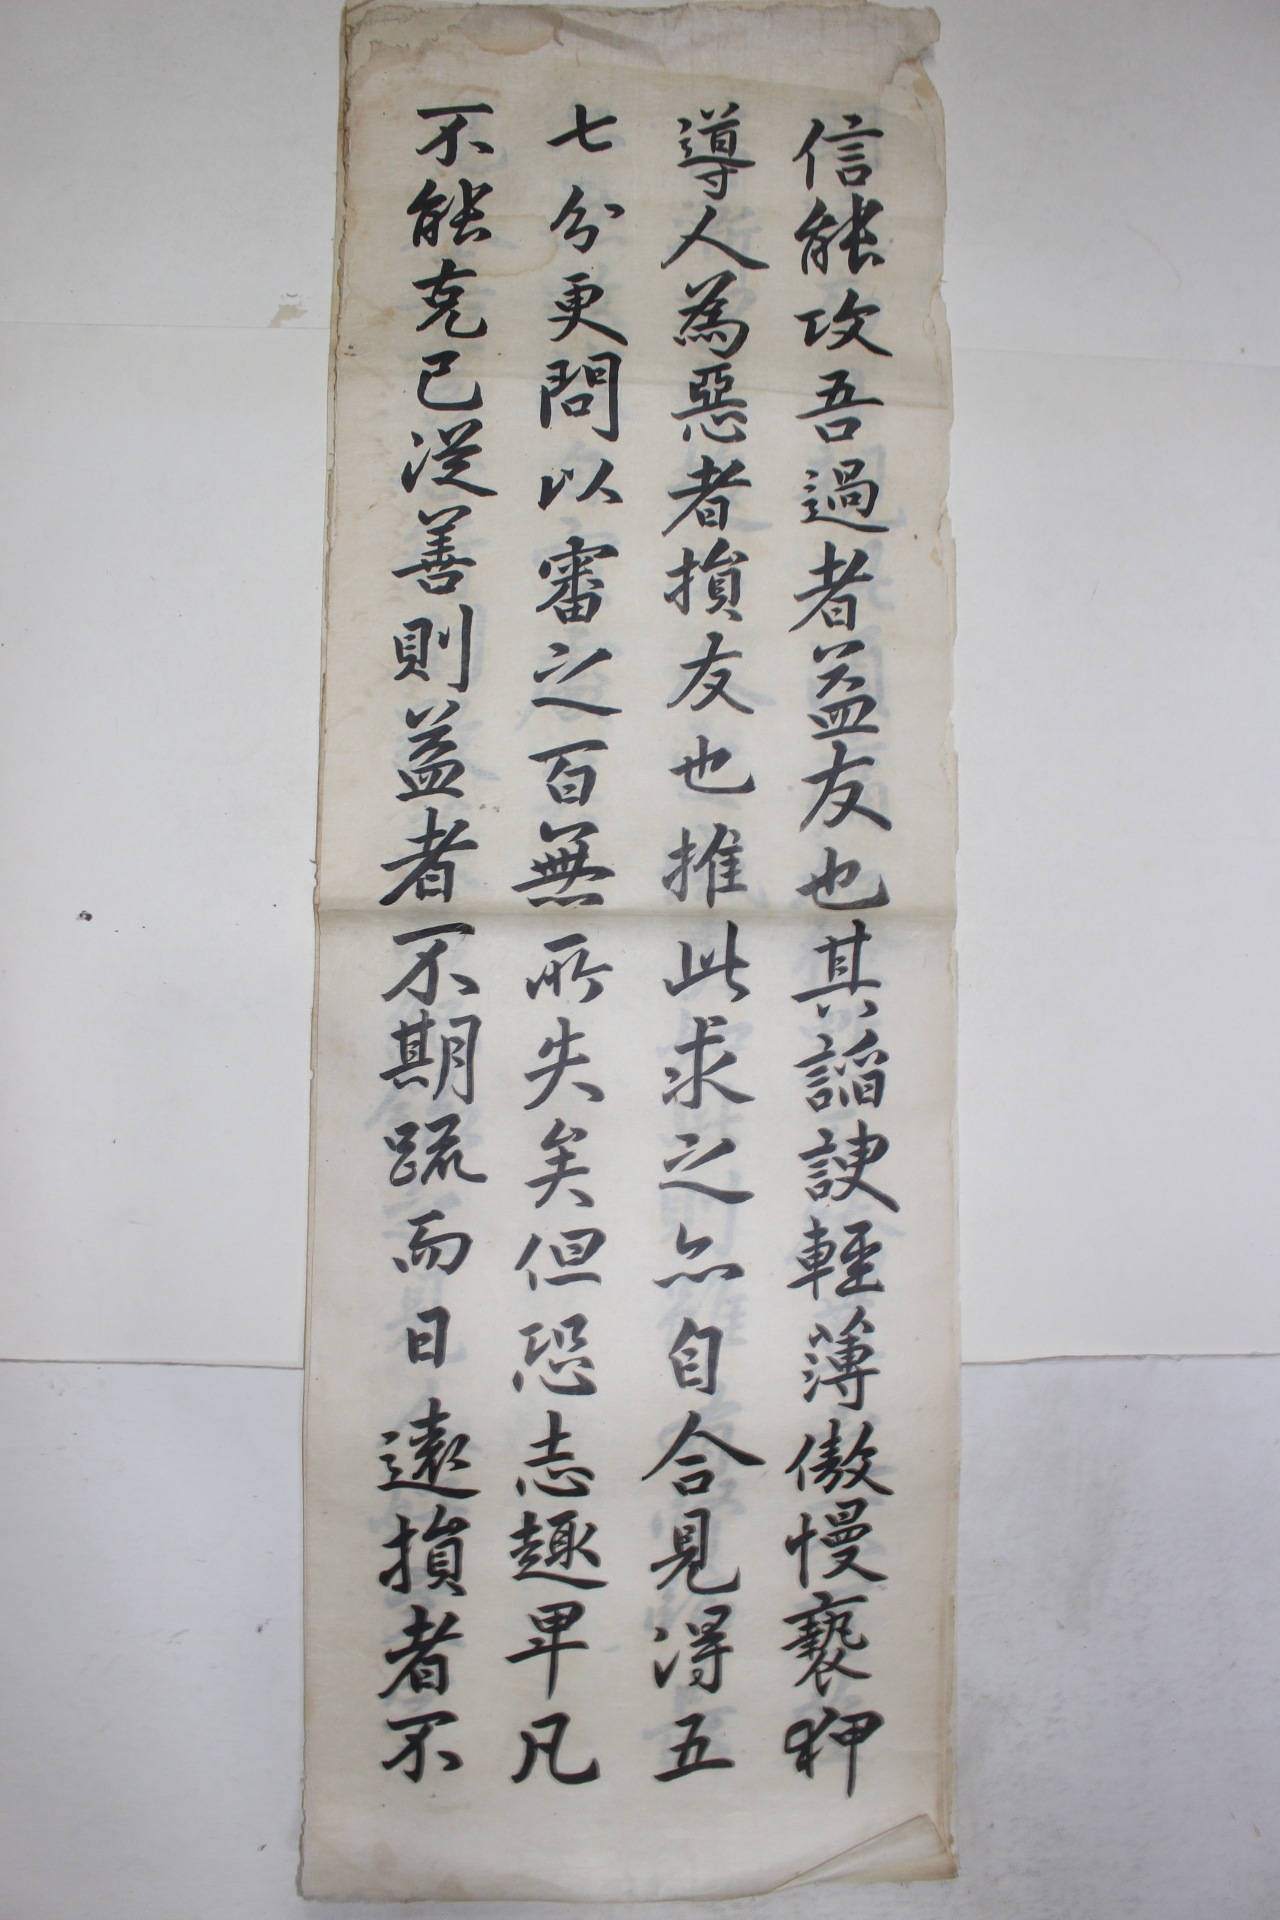 信能攻吾過者益友也其諂諛輕薄傲慢褻狎
導人為惡者損友也推此求之亦自合見得五
七分更問以審之百無所失矣但恐志趣卑凡
不能克己從善則益者不期疏而日遠損者不